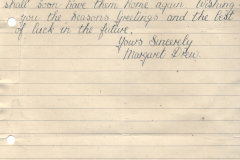 shall soon have them home again wishing
you the seasons greetings and the best
of luck in the future.
Yours Sincerely
Margaret Drew.